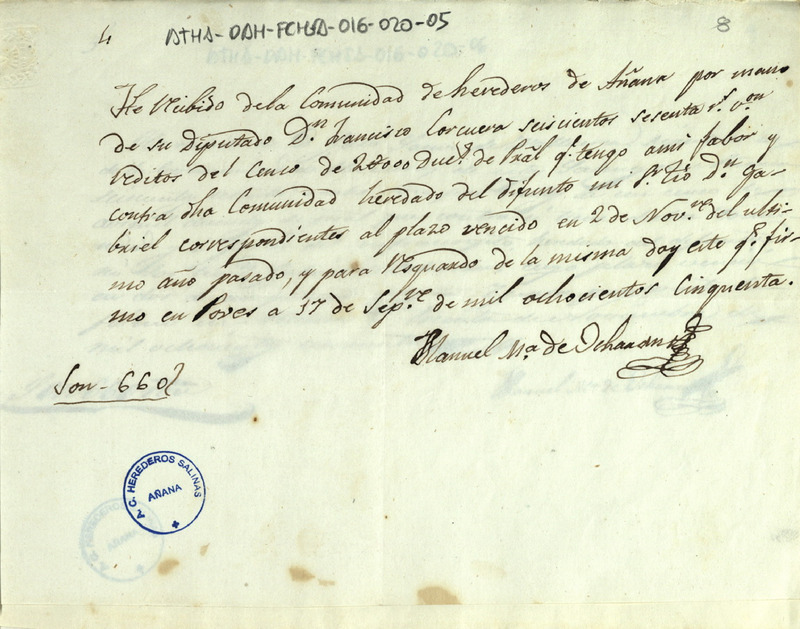 4
ATHA-DAH-FCHSA-016-020-05
8
He Recibido dela Comunidad de herederos de Añana por mano
de su Diputado Dn. Francisco Corcuera seiscientos sesenta rs. von
reditos del Censo de 22000 Ducs. de Pral qe. tengo ami fabor y
contra dha Comunidad heredado del difunto mi Sr. Tio Dn. Ga-
briel correspondientes al plazo vencido en 2 de Novre. del ulti-
mo año pasado, y para Resguardo de la misma doy este qe. fir-
mo en Poves a 17 de Sepre. de mil ochocientos Cinquenta.
Manuel Ma. de
Son - 660
A. C. HEREDEROS SALINAS
AÑANA